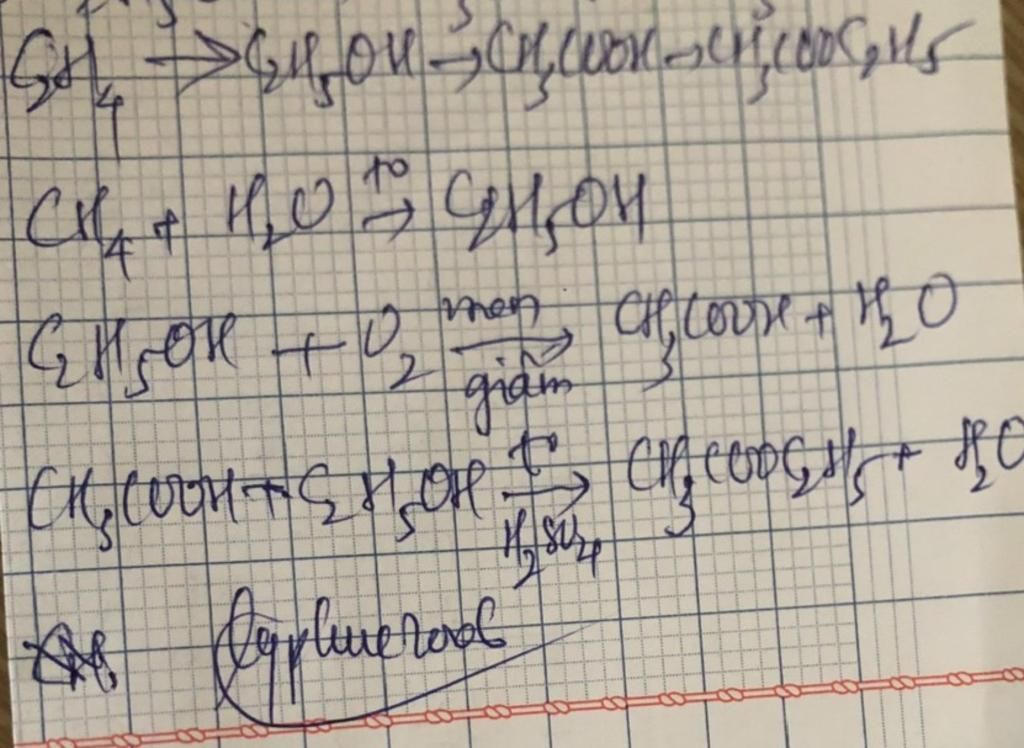 C₂H₄ → C₂H₅OH → CH₃COOH → CH₃COOC₂H₅
CH₄ + H₂O t° → C₂H₅OH
C₂H₅OH + O₂ men giấm → CH₃COOH + H₂O
CH₃COOH + C₂H₅OH t° → H₂SO₄ CH₃COOC₂H₅ + H₂O